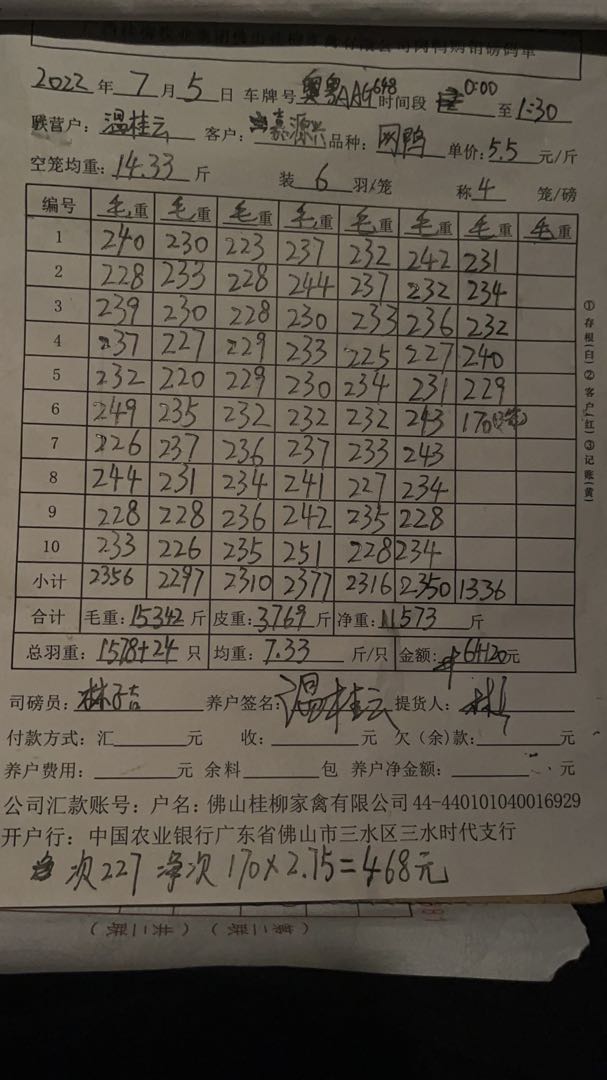 柳家禽有限公司网鸭购销磅码单
2022年7月5日 车牌号粤AAG648时间段0:00至1:30
联营户:温桂云 客户:嘉源兴 品种:网鸭 单价:5.5元/斤
空笼均重:14.33斤 装6羽/笼 称4笼/磅
编号 毛重 毛重 毛重 毛重 毛重 毛重 毛重 毛重
1 240 230 223 237 232 242 231
2 228 233 228 244 237 232 234
3 239 230 228 230 233 236 232
4 237 227 229 233 225 227 240
5 232 220 229 230 234 231 229
6 249 235 232 232 232 243 170
7 226 237 236 237 233 243
8 244 231 234 241 227 234
9 228 228 236 242 235 228
10 233 226 235 251 228 234
小计 2356 2297 2310 2377 2316 2350 1336
合计 毛重:15342斤 皮重:3769斤 净重:11573斤
总羽重:1578+24只 均重:7.33斤/只 金额:64120元
司磅员: 养户签名:温桂云 提货人:
付款方式:汇 元 收: 元 欠(余)款: 元
养户费用: 元 余料 包 养户净金额: 元
公司汇款账号:户名:佛山桂柳家禽有限公司44-440101040016929
开户行:中国农业银行广东省佛山市三水区三水时代支行
次227 净次170×2.75=468元
①存根(白)②客户(红)③记账(黄)
(第二联)(共三联)